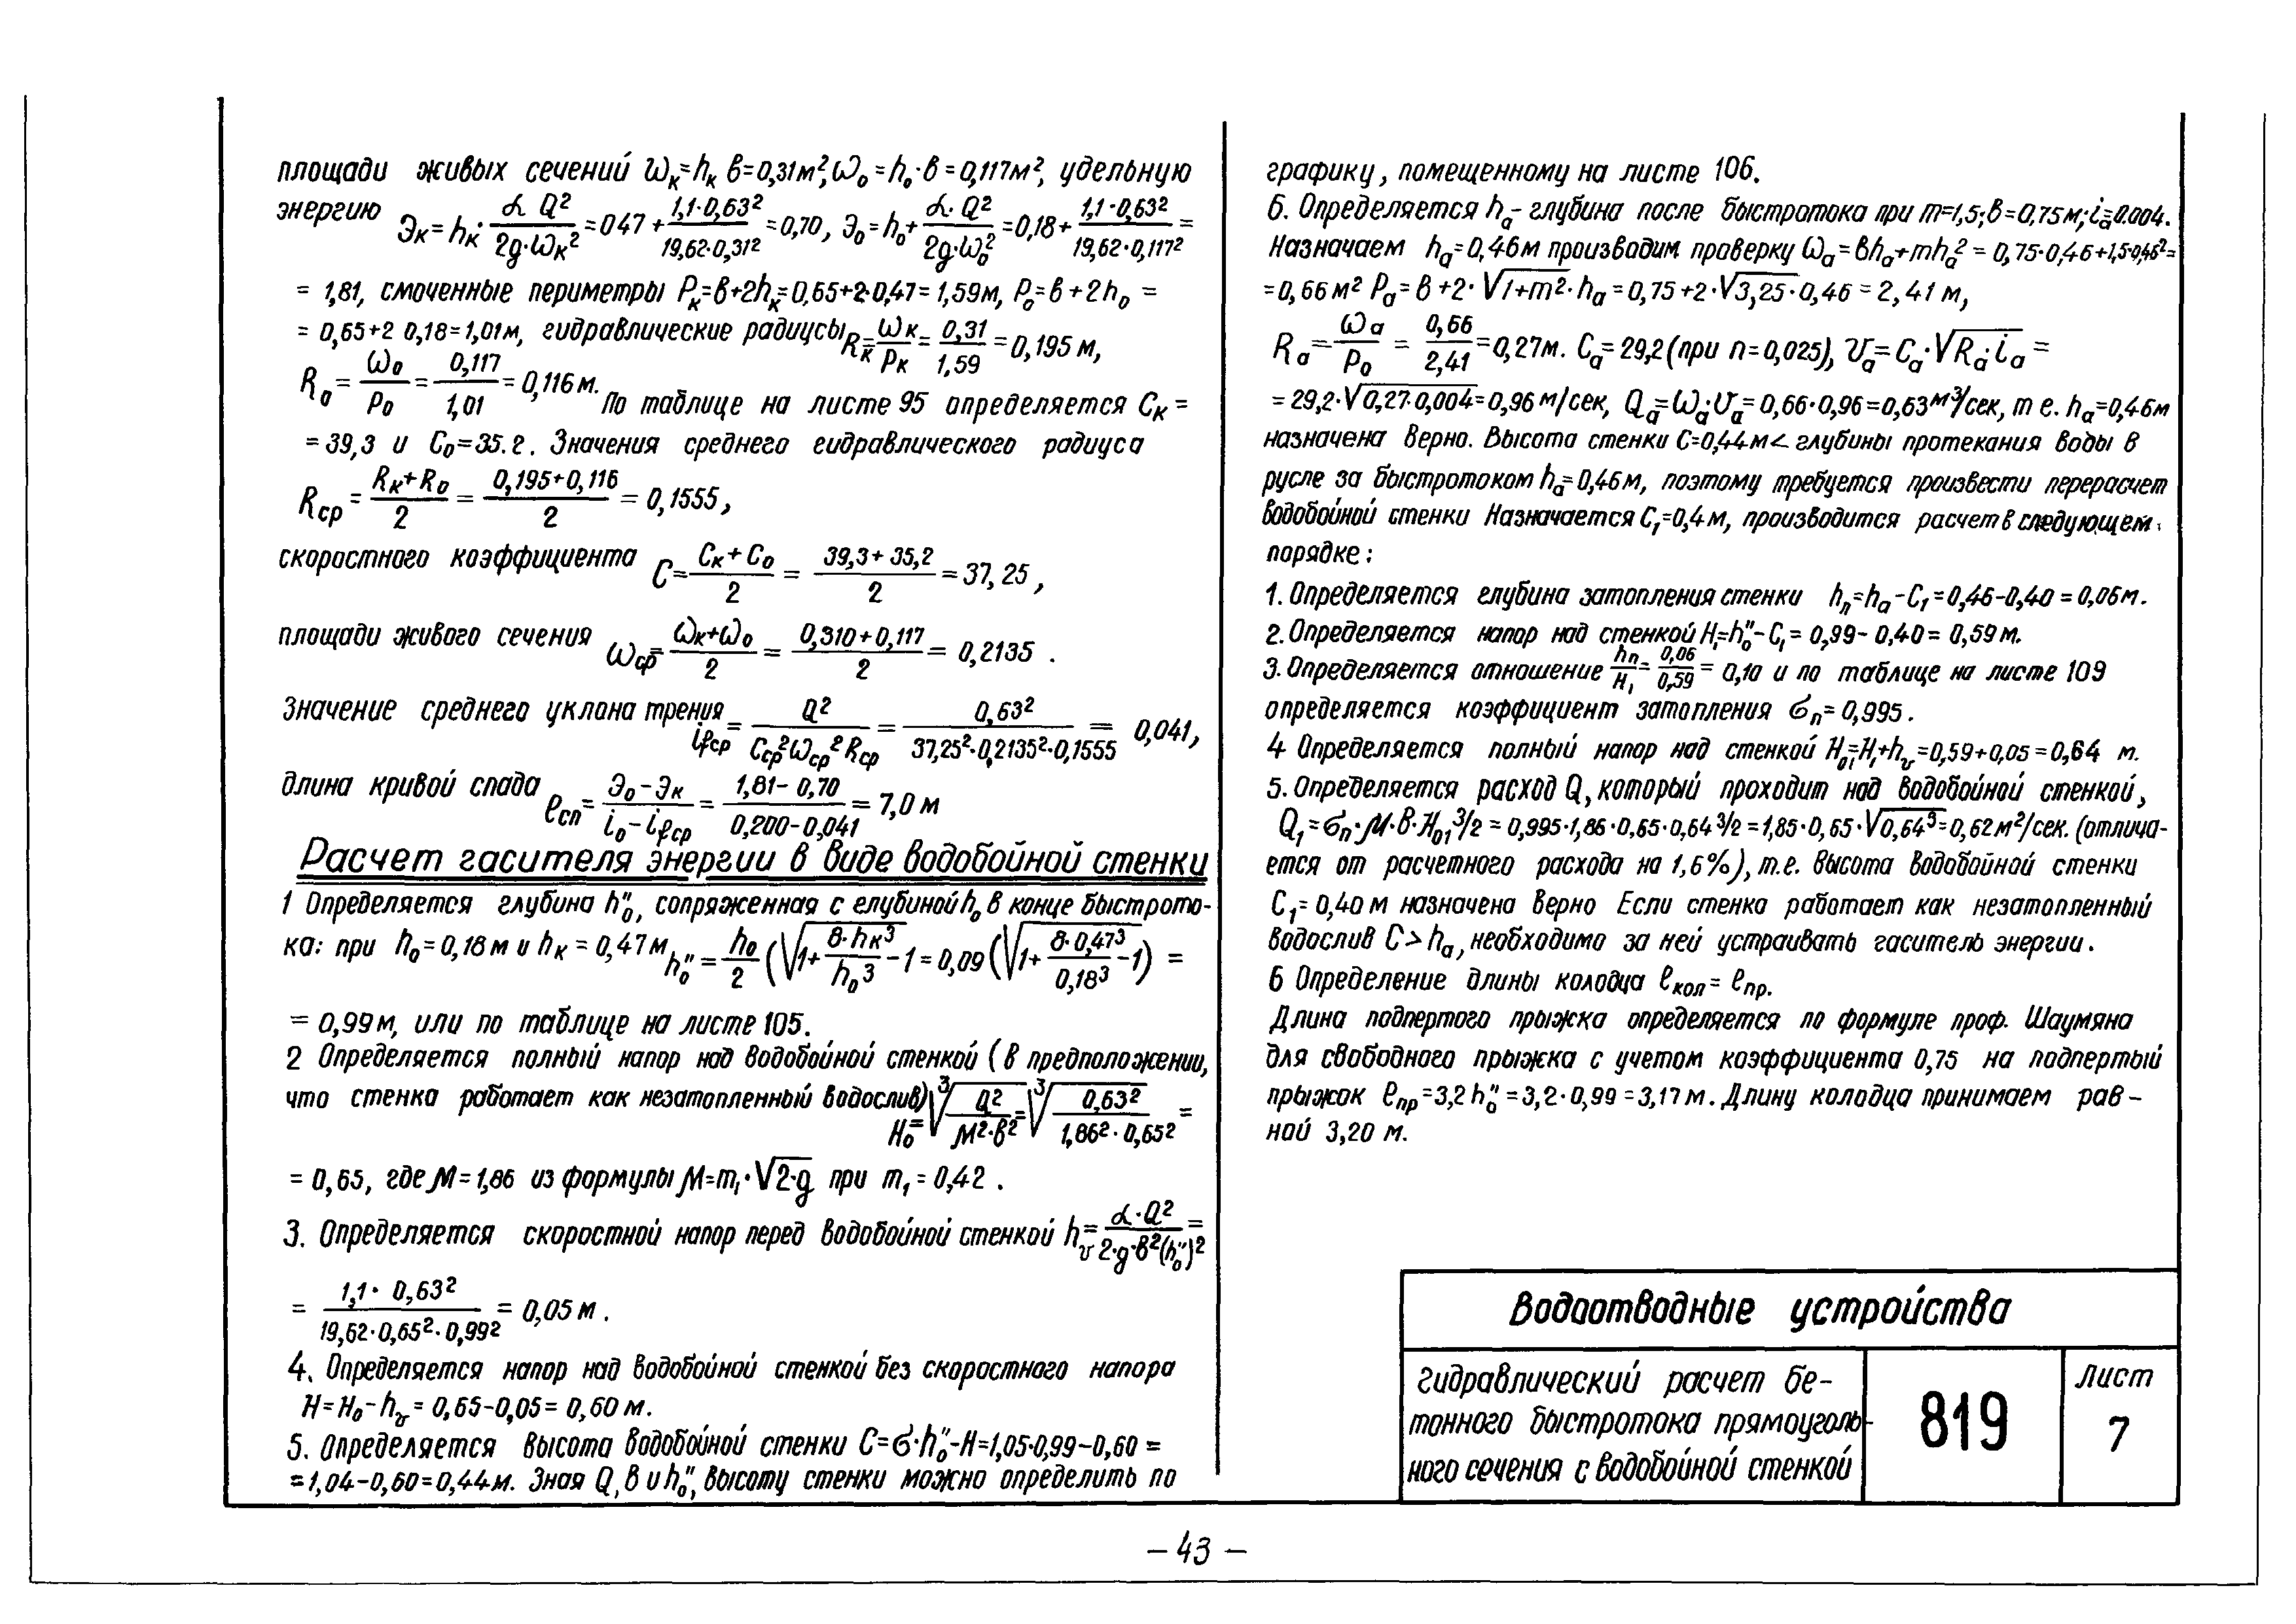 площади живых сечений ωк=hк в=0,31м², ωо=hо·в=0,117м², удельную
энергию Эк=hк·α Q²/2g·ωк²=047+1,1·0,63²/19,62·0,31²=0,70, Эо=hо+α·Q²/2g·ωо²=0,18+1,1·0,63²/19,62·0,117²=
=1,81, смоченные периметры Рк=в+2hк=0,65+2·0,47=1,59м, Ро=в+2hо=
=0,65+2 0,18=1,01м, гидравлические радиусы Rк=ωк/Рк=0,31/1,59=0,195м,
Rо=ωо/Ро=0,117/1,01=0,116м. По таблице на листе 95 определяется Ск=
=39,3 и Со=35.2. Значения среднего гидравлического радиуса
Rср=Rк+Rо/2=0,195+0,116/2=0,1555,
скоростного коэффициента С=Ск+Со/2=39,3+35,2/2=37,25,
площади живого сечения ωср=ωк+ωо/2=0,310+0,117/2=0,2135.
Значение среднего уклона трения ifср=Q²/Сср²ωср²Rср=0,63²/37,25²·0,2135²·0,1555=0,041,
длина кривой спада ℓсп=Эо-Эк/iо-ifср=1,81-0,70/0,200-0,041=7,0м
Расчет гасителя энергии в виде водобойной стенки
1 Определяется глубина hо", сопряженная с глубиной hо в конце быстрото-
ка: при hо=0,18м и hк=0,47м hо"=hо/2(√1+8·hк³/hо³-1=0,09(√1+8·0,47³/0,18³-1)=
=0,99м, или по таблице на листе 105.
2 Определяется полный напор над водобойной стенкой (в предположении,
что стенка работает как незатопленный водослив) Hо=³√Q²/М²·в²=³√0,63²/1,86²·0,65²=
=0,65, где М=1,86 из формулы М=m₁·√2·g при m₁=0,42.
3. Определяется скоростной напор перед водобойной стенкой hv=α·Q²/2·g·в²(hо")²=
=1,1·0,63²/19,62·0,65²·0,99²=0,05м.
4. Определяется напор над водобойной стенкой без скоростного напора
H=Hо-hv=0,65-0,05=0,60м.
5. Определяется высота водобойной стенки С=σ·hо"-H=1,05·0,99-0,60=
=1,04-0,60=0,44м. Зная Q, в и hо", высоту стенки можно определить по
графику, помещенному на листе 106.
6. Определяется hа- глубина после быстротока при m=1,5; в=0,75м; iа=0.004.
Назначаем hа=0,46м производим проверку ωа=вhа+mhа²=0,75·0,46+1,5·0,46²=
=0,66м² Ра=в+2·√1+m²·hа=0,75+2·√3,25·0,46=2,41м,
Rа=ωа/Ро=0,66/2,41=0,27м. Са=29,2(при n=0,025), Vа=Са·√Rа·iа=
=29,2·√0,27·0,004=0,96м/сек, Qа=ωа·Vа=0,66·0,96=0,63м³/сек, т е. hа=0,46м
назначена верно. Высота стенки С=0,44м< глубины протекания воды в
русле за быстротоком hа=0,46м, поэтому требуется произвести перерасчет
водобойной стенки Назначается С₁=0,4м, производится расчет в следующем
порядке:
1. Определяется глубина затопления стенки hп=hа-С₁=0,46-0,40=0,06м.
2. Определяется напор над стенкой H₁=hо"-С₁=0,99-0,40=0,59м.
3. Определяется отношение hп/H₁=0,06/0,59=0,10 и по таблице на листе 109
определяется коэффициент затопления σп=0,995.
4 Определяется полный напор над стенкой Hо₁=H₁+hv=0,59+0,05=0,64 м.
5. Определяется расход Q, который проходит над водобойной стенкой,
Q₁=σп·М·в·Hо₁3/2=0,995·1,86·0,65·0,64 3/2=1,85·0,65·√0,64³=0,62м²/сек. (отлича-
ется от расчетного расхода на 1,6%), т.е. высота водобойной стенки
С₁=0,40м назначена верно Если стенка работает как незатопленный
водослив С>hа, необходимо за ней устраивать гаситель энергии.
6 Определение длины колодца ℓкол=ℓпр.
Длина подпертого прыжка определяется по формуле проф. Шаумяна
для свободного прыжка с учетом коэффициента 0,75 на подпертый
прыжок ℓпр=3,2hо"=3,2·0,99=3,17м. Длину колодца принимаем рав-
ной 3,20 м.
Водоотводные устройства
гидравлический расчет бе-
тонного быстротока прямоуголь-
ного сечения с водобойной стенкой
819
Лист
7
- 43 -